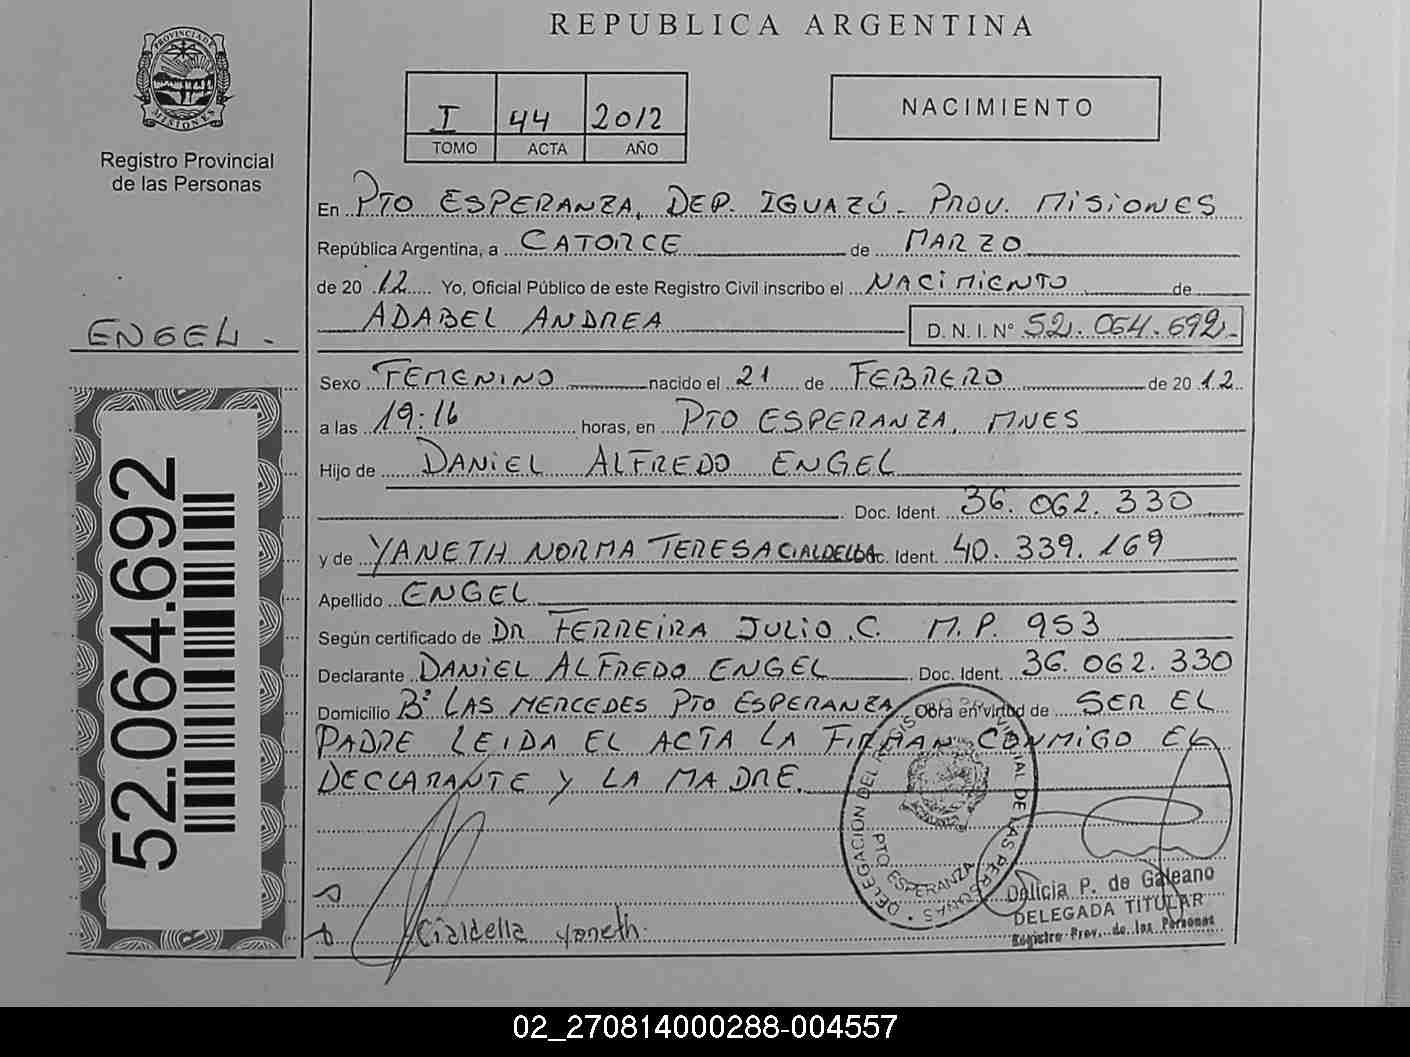 REPUBLICA ARGENTINA
PROVINCIA DE
MISIONES
Registro Provincial
de las Personas
I 44 2012
TOMO ACTA AÑO
NACIMIENTO
En PTO ESPERANZA, DEP. IGUAZÚ - PROV. MISIONES
República Argentina, a CATORCE de MARZO
de 2012 Yo, Oficial Público de este Registro Civil inscribo el NACIMIENTO de
ADABEL ANDREA D. N. I. N° 52.064.692-
ENGEL -
Sexo FEMENINO nacido el 21 de FEBRERO de 2012
a las 19:16 horas, en PTO ESPERANZA, MNES
Hijo de DANIEL ALFREDO ENGEL
Doc. Ident. 36.062.330
y de YANETH NORMA TERESA CIALDELLA Doc. Ident. 40.339.169
Apellido ENGEL
Según certificado de DR FERREIRA JULIO C. M.P. 953
Declarante DANIEL ALFREDO ENGEL Doc. Ident. 36.062.330
Domicilio Bº LAS MERCEDES PTO ESPERANZA Obra en virtud de SER EL
PADRE LEIDA EL ACTA LA FIRMAN CONMIGO EL
DECLARANTE Y LA MADRE.
52.064.692
DELEGACIÓN DEL REGISTRO PROVINCIAL DE LAS PERSONAS
PTO ESPERANZA
Cialdella Yaneth.
Delicia P. de Galeano
DELEGADA TITULAR
Registro Prov. de las Personas
02_270814000288-004557